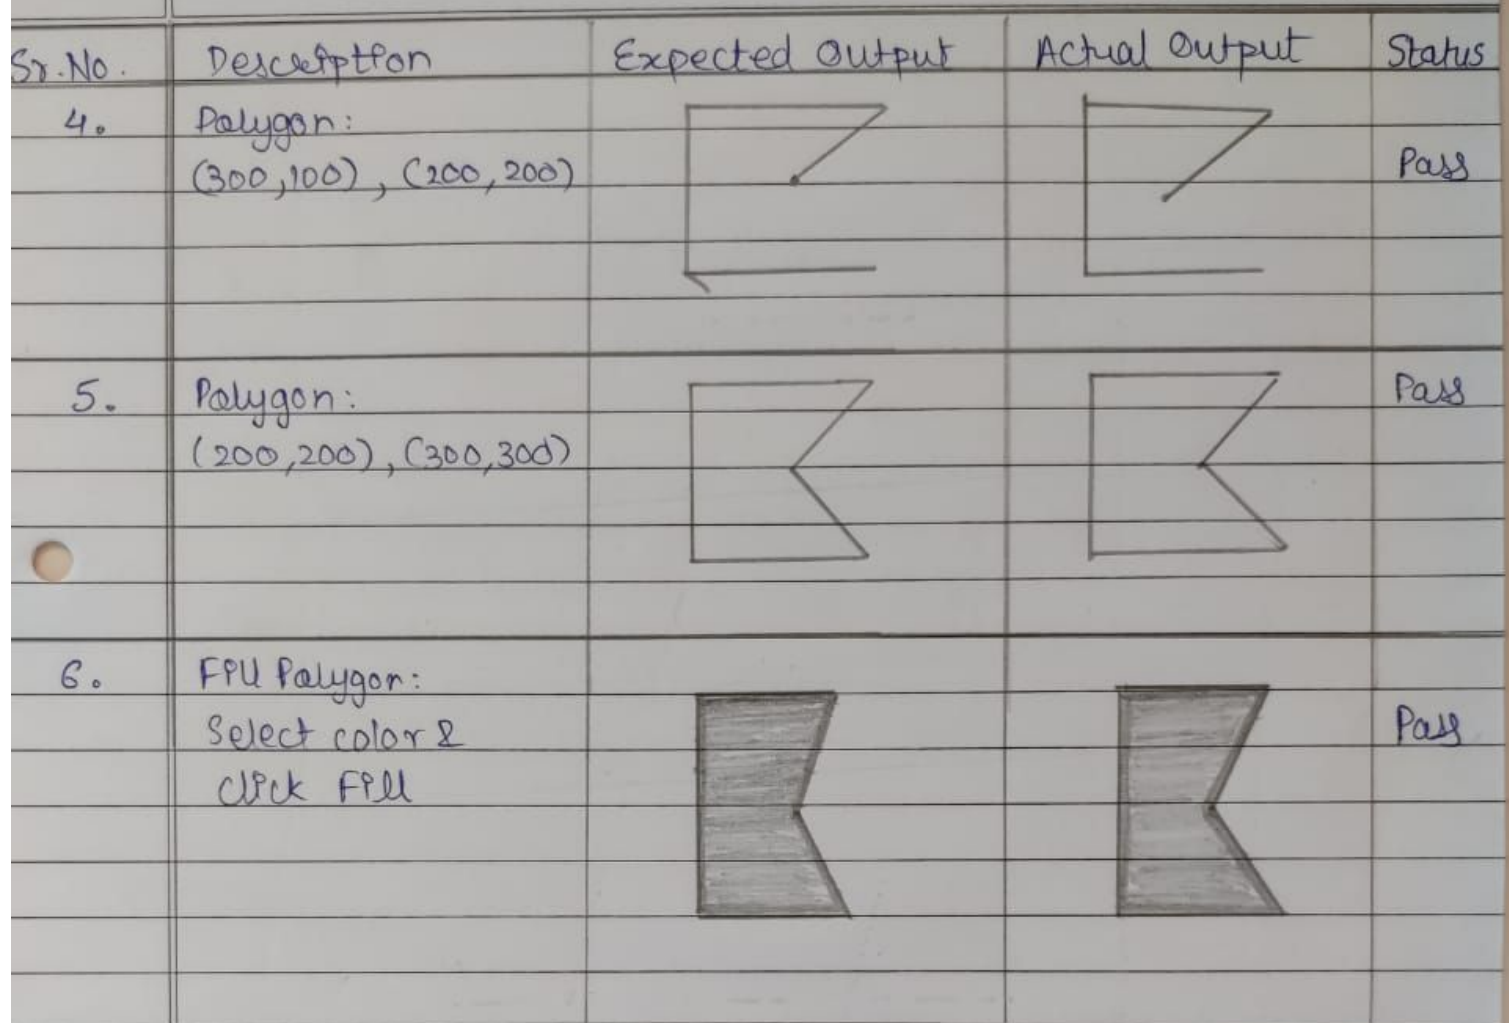 Sr.No. Description Expected Output Actual Output Status
4. Polygon:
(300,100), (200,200) Pass
5. Polygon: Pass
(200,200), (300,300)
6. Fill Polygon:
Select color & Pass
Click Fill